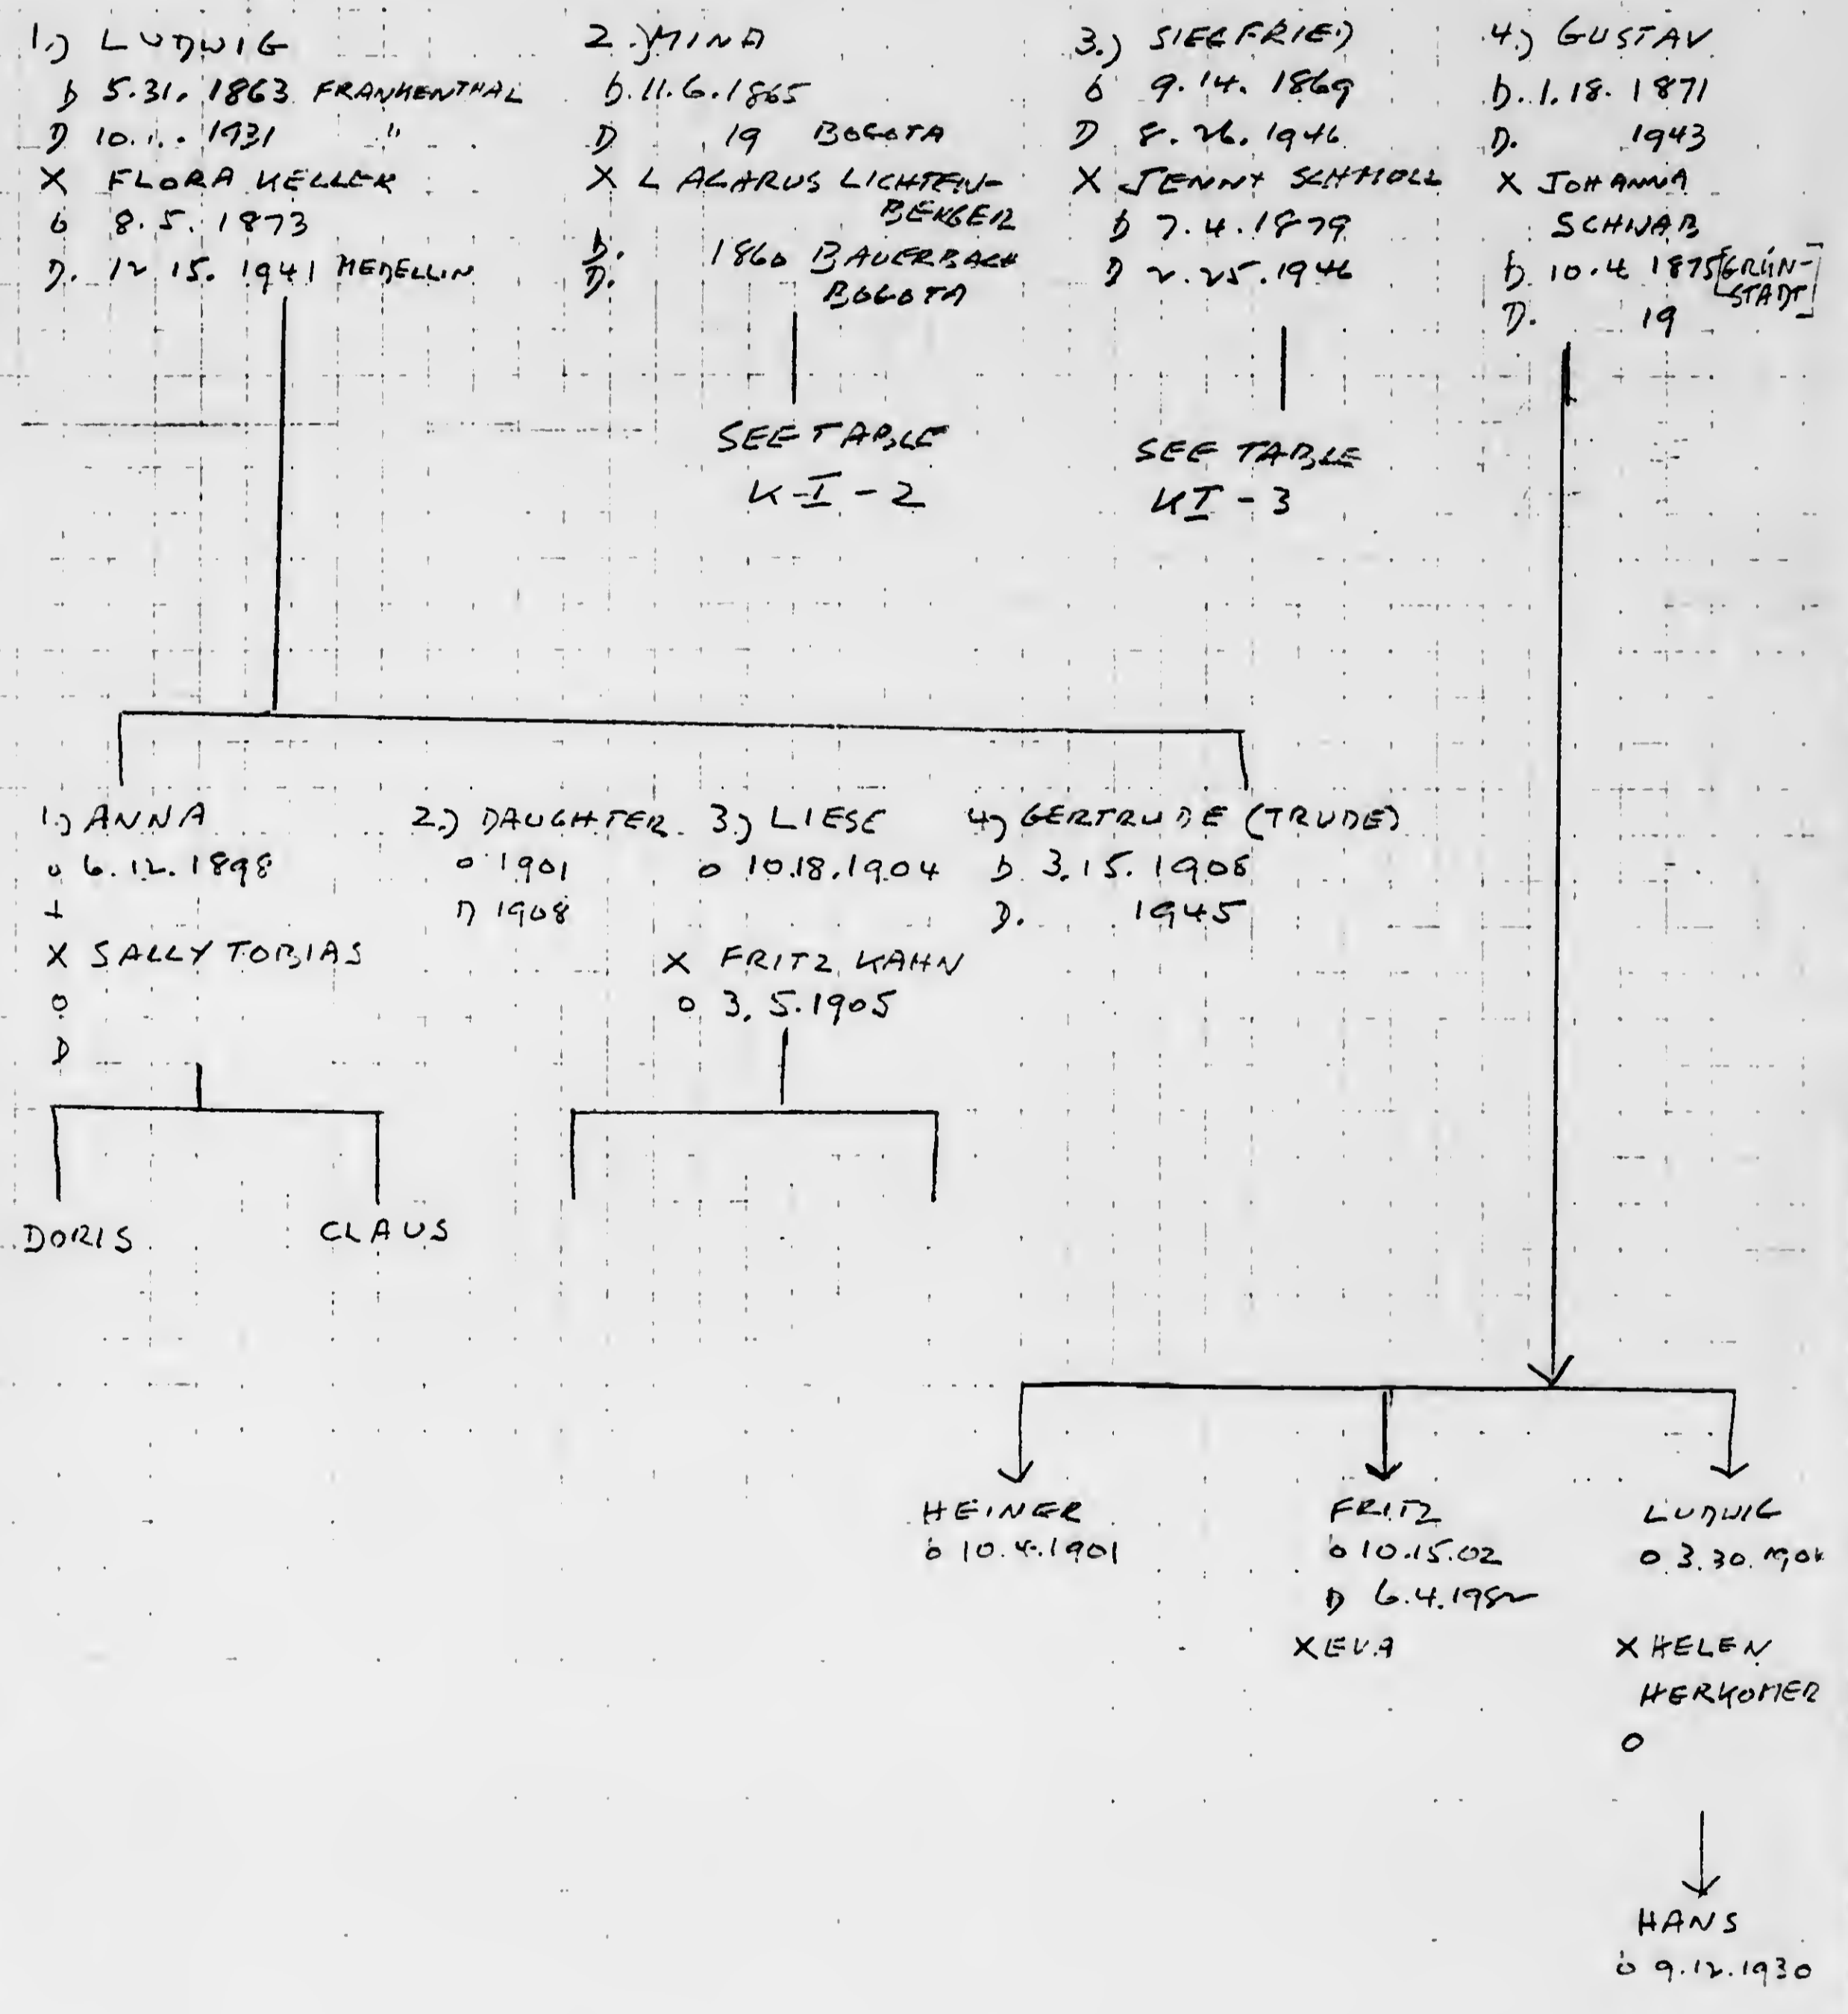 1.) LUDWIG
b 5.31. 1863 FRANKENTHAL
D 10.1. 1931 "
X FLORA KELLER
b 8.5. 1873
D. 12 15. 1941 MEDELLIN
2.) MINA
b. 11.6.1865
D 19 BOGOTA
X LAZARUS LICHTEN-
BERGER
b. 1860 BAUERBACH
D. BOGOTA
SEE TABLE
K-I-2
3.) SIEGFRIED
b 9.14. 1869
D 8.26. 1946
X JENNY SCHMOLL
b 7.4.1879
D 2.25.1946
SEE TABLE
KI-3
4.) GUSTAV
b. 1.18. 1871
D. 1943
X JOHANNA
SCHWAB
b. 10.4 1875 [GRÜN-
STADT]
D. 19
1.) ANNA
o 6.12.1898
+
X SALLY TOBIAS
o
D
2.) DAUGHTER
o 1901
D 1908
3.) LIESE
o 10.18.1904
X FRITZ KAHN
o 3.5.1905
4.) GERTRUDE (TRUDE)
b 3.15.
D. 1945
DORIS
CLAUS
HEINER
o 10.4.1901
FRITZ
o 10.15.02
D 6.4.1982
X EVA
LUDWIG
o 3.30.
X HELEN
HERKOMER
o
HANS
o 9.12.1930